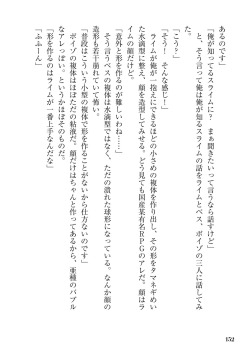 あるのです」
「俺が知ってるスライムに？　まぁ聞きたいって言うなら話すけど」
と、そう言って俺は俺が知るスライムの話をライムとベス、ポイゾの三人に話してみ
た。
「こう？」
「そう！　そんな感じ！」
ライムが俺が一抱えにできるほどの小さめの複体を作り出し、その形をタマネギめい
た水滴型に整え、顔を造型してみせる。どう見ても国産某有名ＲＰＧのアレだ。顔はラ
イムの顔だけど。
「意外と形を作るのが難しいわね……」
そう言うベスの複体は水滴型ではなく、ただの潰れた球形になっている。なんか顔の
造形も若干崩れていて怖い。
「普段はこういう小型の複体で形を作ることがないから仕方ないのです」
ポイゾの複体はほぼただの粘液だ。顔だけはちゃんと作ってあるから、亜種のバブル
なアレっぽい。というかほぼそのものだ。
「形を作るのはライムが一番上手なんだな」
「ふふーん」
152